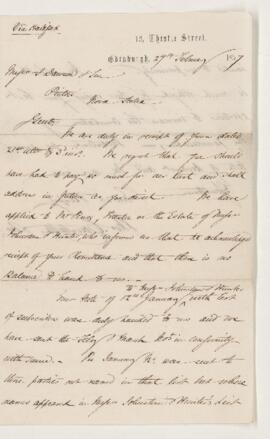 Via Halifax
13, Thistle Street.
Edinburgh, 27th February 187
Messrs J Dawson & Son
Pictou
Nova Scotia
Gents
We are duly in receipt of yours dated
21st ulto & 3d inst. We regret that you should
have had to pay so much for our last and shall
address in future as you direct. We have
applied to Mr King, Trustee on the Estate of Messrs
Johnston & Hunter, who informs us that he acknowledges
receipt of your Remittance and that there is no
Balance to hand to us.
Your Note of 12th January to Messrs Johnston & Hunter with list
of subscribers was duly handed to us and we
have sent the Feby & March Nos in conformity
with same. The January No was sent to
those parties not named in that list but whose
names appeared in Messrs Johnston & Hunter's list